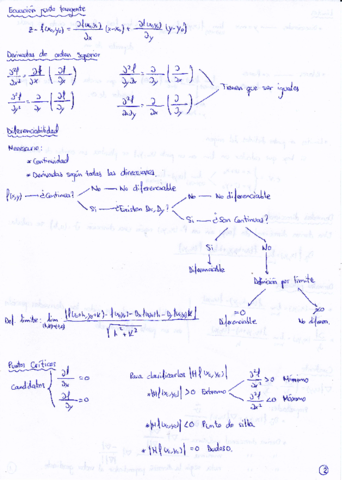 Ecuación plano tangente
z - f(x₀,y₀) = ∂f(x₀,y₀)/∂x (x-x₀) + ∂f(x₀,y₀)/∂y (y-y₀)
Derivadas de orden superior
∂²f/∂x² = ∂/∂x (∂f/∂x)
∂²f/∂y∂x = ∂/∂y (∂f/∂x)
Tienen que ser iguales
∂²f/∂y² = ∂/∂y (∂f/∂y)
∂²f/∂x∂y = ∂/∂x (∂f/∂y)
Diferenciabilidad
Necesario:
* Continuidad
* Derivadas según todas las direcciones
f(x,y) ¿Continua?
No — No diferenciable
Si — ¿Existen Dx, Dy?
No — No diferenciable
Si — ¿Son Continuas?
Si
No
Diferenciable
Definición por límite
=0
≠0
Diferenciable
No diferen.
Def. límite: lim
√h²+k²
Puntos Críticos
Candidatos
∂f/∂x = 0
∂f/∂y = 0
Para clasificarlos |H f(x₀,y₀)|
* |H f(x₀,y₀)| > 0 Extremo
∂²f/∂x² > 0 Mínimo
∂²f/∂x² < 0 Máximo
* |H f(x₀,y₀)| < 0 Punto de silla
* |H f(x₀,y₀)| = 0 Dudoso.
2